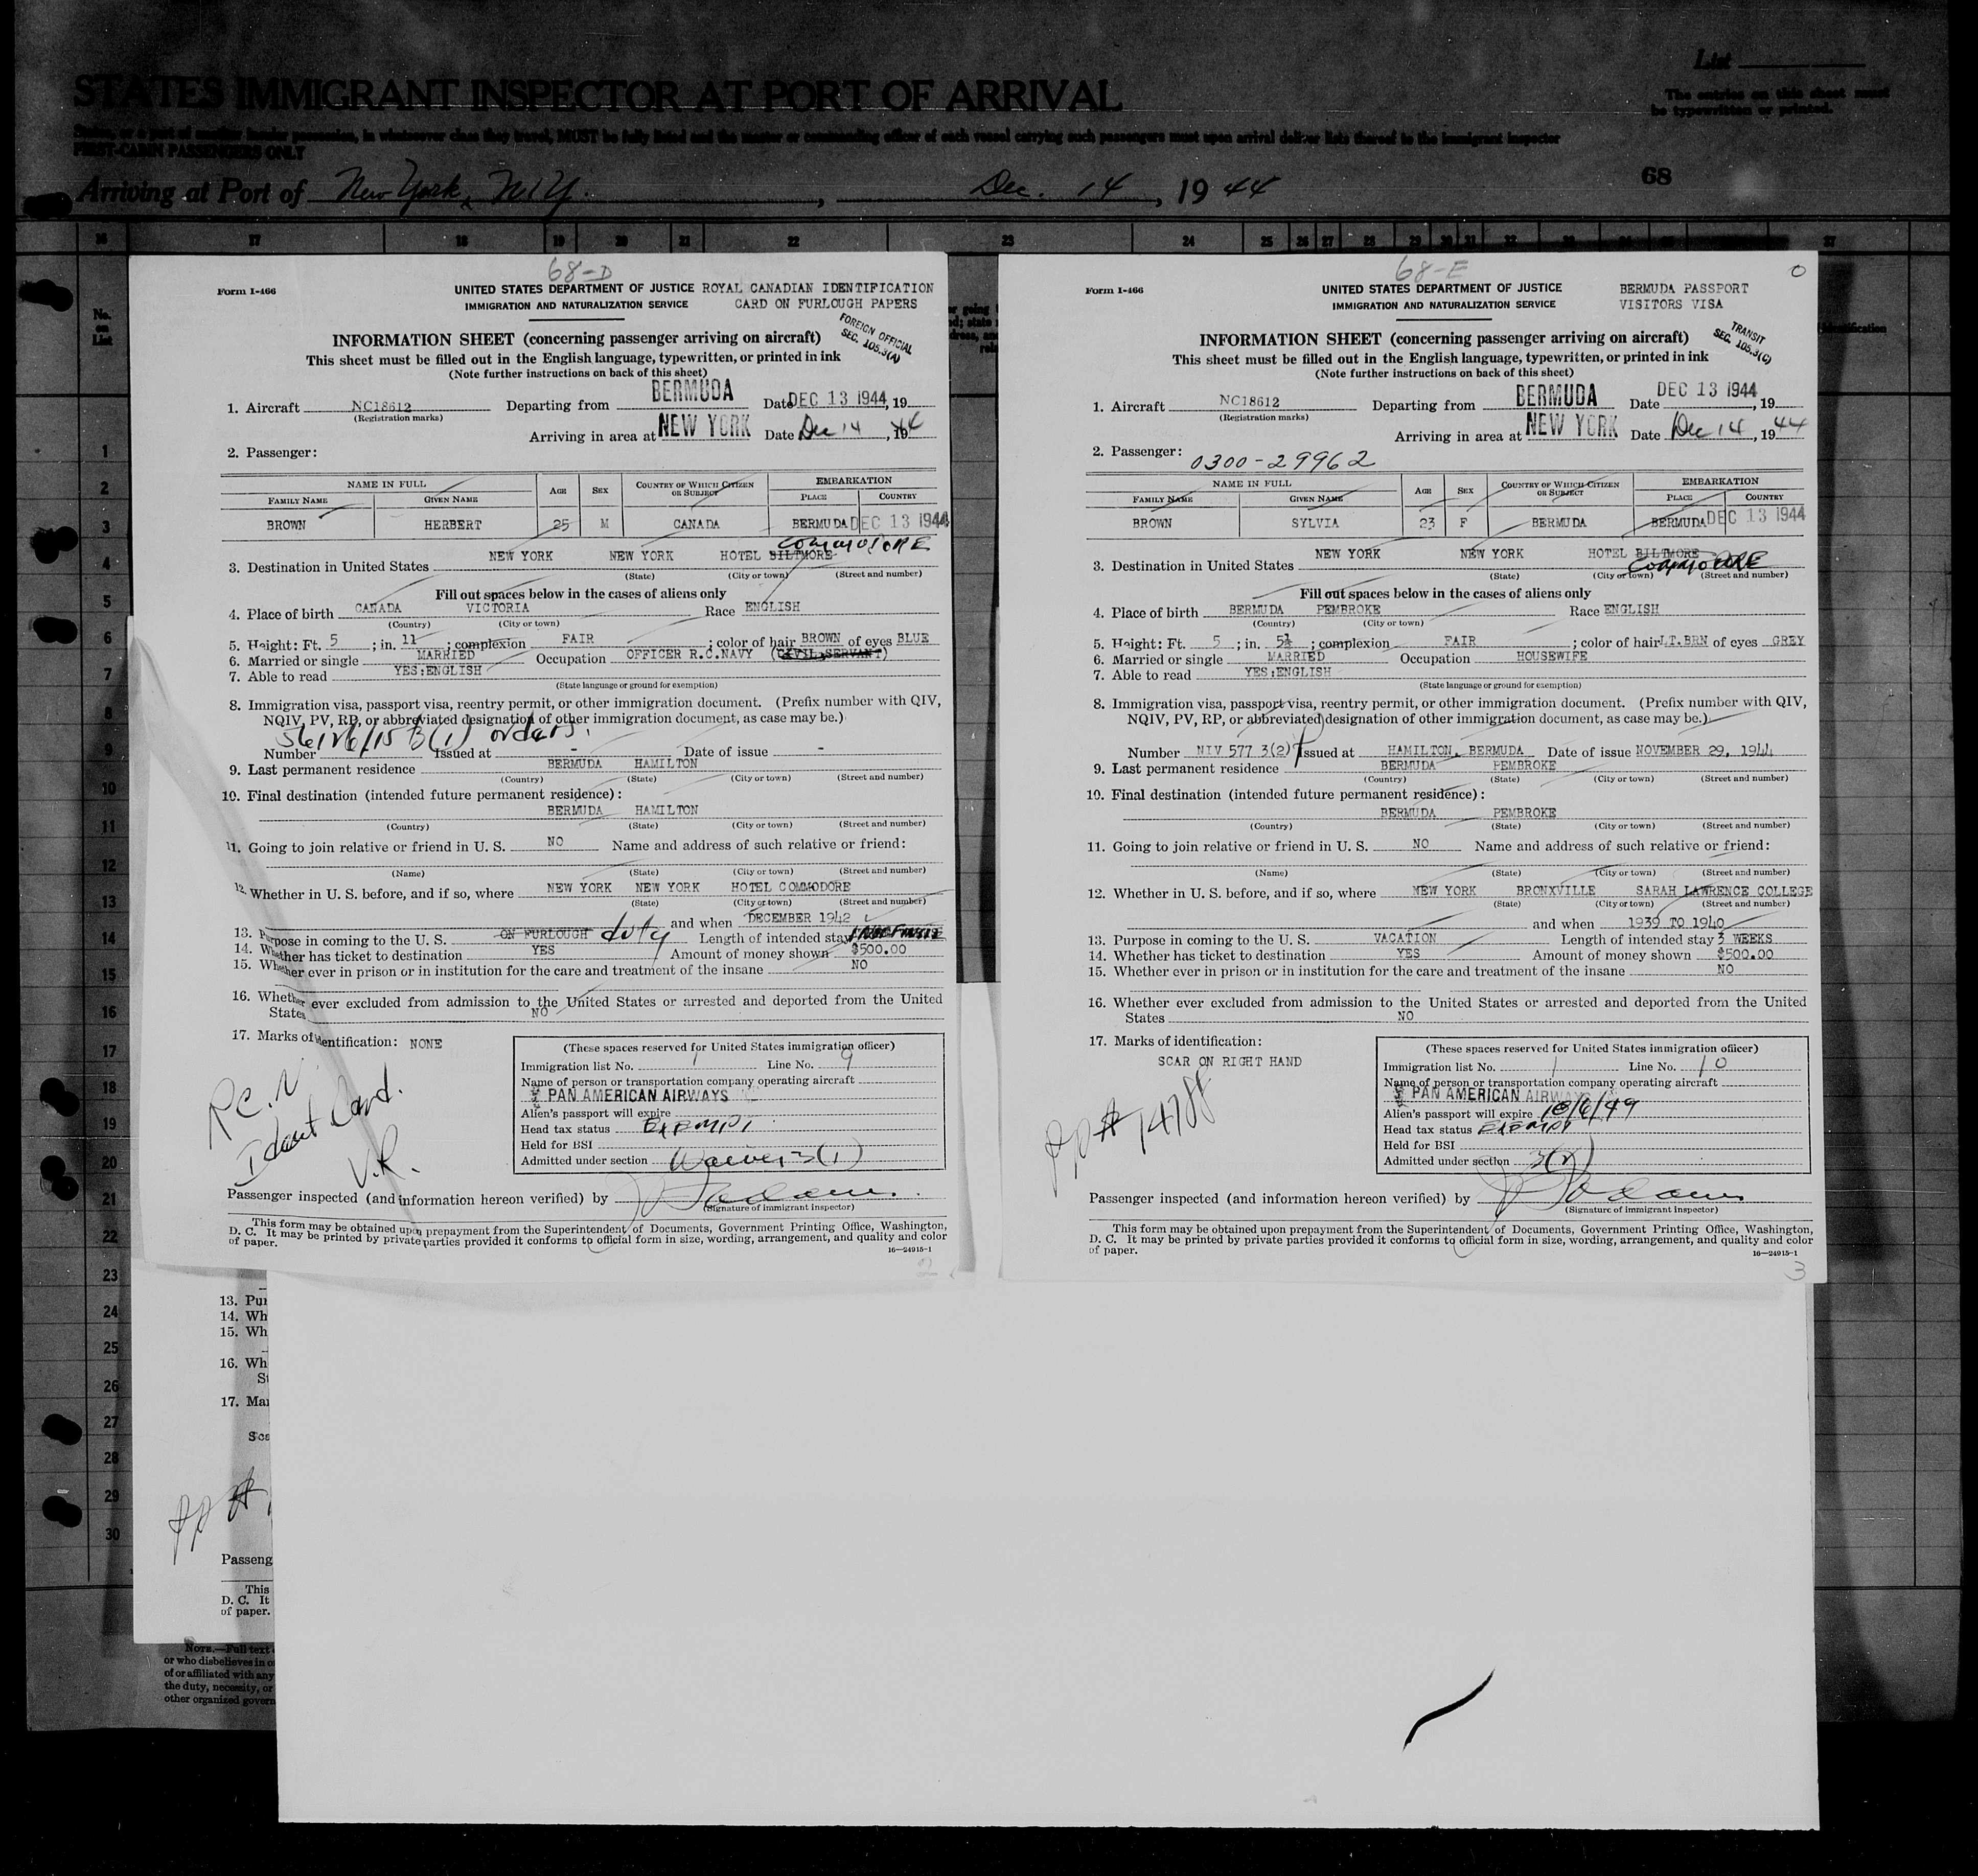 List
STATES IMMIGRANT INSPECTOR AT PORT OF ARRIVAL
The entries on this sheet must
be typewritten or printed.
States, or a part of another insular possession, in whatsoever class they travel, MUST be fully listed and the master or commanding officer of each vessel carrying such passengers must upon arrival deliver lists thereof to the immigrant inspector
FIRST-CABIN PASSENGERS ONLY
68
Arriving at Port of New York, N.Y. , Dec. 14 , 19 44
16 17 18 19 20 21 22 23 24 25 26 27 28 29 30 31 32 33 37
No. on List
1
2
3
4
5
6
7
8
9
10
11
12
13
14
15
16
17
18
19
20
21
22
23
24
25
26
27
28
29
30
68-D
Form I-466
UNITED STATES DEPARTMENT OF JUSTICE ROYAL CANADIAN IDENTIFICATION
IMMIGRATION AND NATURALIZATION SERVICE CARD ON FURLOUGH PAPERS
FOREIGN OFFICIAL
SEC. 105.3(A)
INFORMATION SHEET (concerning passenger arriving on aircraft)
This sheet must be filled out in the English language, typewritten, or printed in ink
(Note further instructions on back of this sheet)
1. Aircraft NC18612 Departing from BERMUDA Date DEC 13 1944, 19
(Registration marks)
Arriving in area at NEW YORK Date Dec 14, 1944
2. Passenger:
NAME IN FULL AGE SEX COUNTRY OF WHICH CITIZEN OR SUBJECT EMBARKATION
FAMILY NAME GIVEN NAME PLACE COUNTRY
BROWN HERBERT 25 M CANADA BERMUDA DEC 13 1944
COMMODORE
NEW YORK NEW YORK HOTEL BILTMORE
3. Destination in United States
(State) (City or town) (Street and number)
Fill out spaces below in the cases of aliens only
4. Place of birth CANADA VICTORIA Race ENGLISH
(Country) (City or town)
5. Height: Ft. 5 ; in. 11 ; complexion FAIR ; color of hair BROWN of eyes BLUE
6. Married or single MARRIED Occupation OFFICER R.C.NAVY (CIVIL SERVANT)
7. Able to read YES:ENGLISH
(State language or ground for exemption)
8. Immigration visa, passport visa, reentry permit, or other immigration document. (Prefix number with QIV,
NQIV, PV, RP, or abbreviated designation of other immigration document, as case may be.)
3(1) orders.
Number Issued at - Date of issue -
9. Last permanent residence BERMUDA HAMILTON
(Country) (State) (City or town) (Street and number)
10. Final destination (intended future permanent residence):
BERMUDA HAMILTON
(Country) (State) (City or town) (Street and number)
11. Going to join relative or friend in U. S. NO Name and address of such relative or friend:
(Name) (State) (City or town) (Street and number)
12. Whether in U. S. before, and if so, where NEW YORK NEW YORK HOTEL COMMODORE
(State) (City or town) (Street and number)
and when DECEMBER 1942
13. Purpose in coming to the U. S. ON FURLOUGH duty Length of intended stay INDEFINITE
14. Whether has ticket to destination YES Amount of money shown $500.00
15. Whether ever in prison or in institution for the care and treatment of the insane NO
16. Whether ever excluded from admission to the United States or arrested and deported from the United
States NO
17. Marks of identification: NONE
R.C.N.
Ident Card.
V.R.
(These spaces reserved for United States immigration officer)
Immigration list No. 1 Line No. 9
Name of person or transportation company operating aircraft
PAN AMERICAN AIRWAYS
Alien's passport will expire
Head tax status EXEMPT
Held for BSI
Admitted under section Waiver 3(1)
Passenger inspected (and information hereon verified) by
(Signature of immigrant inspector)
This form may be obtained upon prepayment from the Superintendent of Documents, Government Printing Office, Washington,
D. C. It may be printed by private parties provided it conforms to official form in size, wording, arrangement, and quality and color
of paper.
16—24915-1
2
68-E
0
Form I-466
UNITED STATES DEPARTMENT OF JUSTICE BERMUDA PASSPORT
IMMIGRATION AND NATURALIZATION SERVICE VISITORS VISA
TRANSIT
SEC. 105.3(C)
INFORMATION SHEET (concerning passenger arriving on aircraft)
This sheet must be filled out in the English language, typewritten, or printed in ink
(Note further instructions on back of this sheet)
1. Aircraft NC18612 Departing from BERMUDA Date DEC 13 1944, 19
(Registration marks)
Arriving in area at NEW YORK Date Dec 14, 1944
2. Passenger: 0300-29962
NAME IN FULL AGE SEX COUNTRY OF WHICH CITIZEN OR SUBJECT EMBARKATION
FAMILY NAME GIVEN NAME PLACE COUNTRY
BROWN SYLVIA 23 F BERMUDA BERMUDA DEC 13 1944
NEW YORK NEW YORK HOTEL BILTMORE
3. Destination in United States COMMODORE
(State) (City or town) (Street and number)
Fill out spaces below in the cases of aliens only
4. Place of birth BERMUDA PEMBROKE Race ENGLISH
(Country) (City or town)
5. Height: Ft. 5 ; in. 5½ ; complexion FAIR ; color of hair LT.BRN of eyes GREY
6. Married or single MARRIED Occupation HOUSEWIFE
7. Able to read YES:ENGLISH
(State language or ground for exemption)
8. Immigration visa, passport visa, reentry permit, or other immigration document. (Prefix number with QIV,
NQIV, PV, RP, or abbreviated designation of other immigration document, as case may be.)
Number NIV 577 3(2) Issued at HAMILTON, BERMUDA Date of issue NOVEMBER 29, 1944
9. Last permanent residence BERMUDA PEMBROKE
(Country) (State) (City or town) (Street and number)
10. Final destination (intended future permanent residence):
BERMUDA PEMBROKE
(Country) (State) (City or town) (Street and number)
11. Going to join relative or friend in U. S. NO Name and address of such relative or friend:
(Name) (State) (City or town) (Street and number)
12. Whether in U. S. before, and if so, where NEW YORK BRONXVILLE SARAH LAWRENCE COLLEGE
(State) (City or town) (Street and number)
and when 1939 TO 1940
13. Purpose in coming to the U. S. VACATION Length of intended stay 3 WEEKS
14. Whether has ticket to destination YES Amount of money shown $500.00
15. Whether ever in prison or in institution for the care and treatment of the insane NO
16. Whether ever excluded from admission to the United States or arrested and deported from the United
States NO
17. Marks of identification:
SCAR ON RIGHT HAND
pp#
(These spaces reserved for United States immigration officer)
Immigration list No. 1 Line No. 10
Name of person or transportation company operating aircraft
PAN AMERICAN AIRWAYS
Alien's passport will expire 10/6/49
Head tax status EXEMPT
Held for BSI
Admitted under section 3(2)
Passenger inspected (and information hereon verified) by
(Signature of immigrant inspector)
This form may be obtained upon prepayment from the Superintendent of Documents, Government Printing Office, Washington,
D. C. It may be printed by private parties provided it conforms to official form in size, wording, arrangement, and quality and color
of paper.
16—24915-1
3
13. Pur
14. Wh
15. Wh
16. Wh
St
17. Mar
Sca
pp #
Passeng
This
D. C. It
of paper.
NOTE.—Full text
or who disbelieves in o
of or affiliated with any
the duty, necessity, or
other organized govern